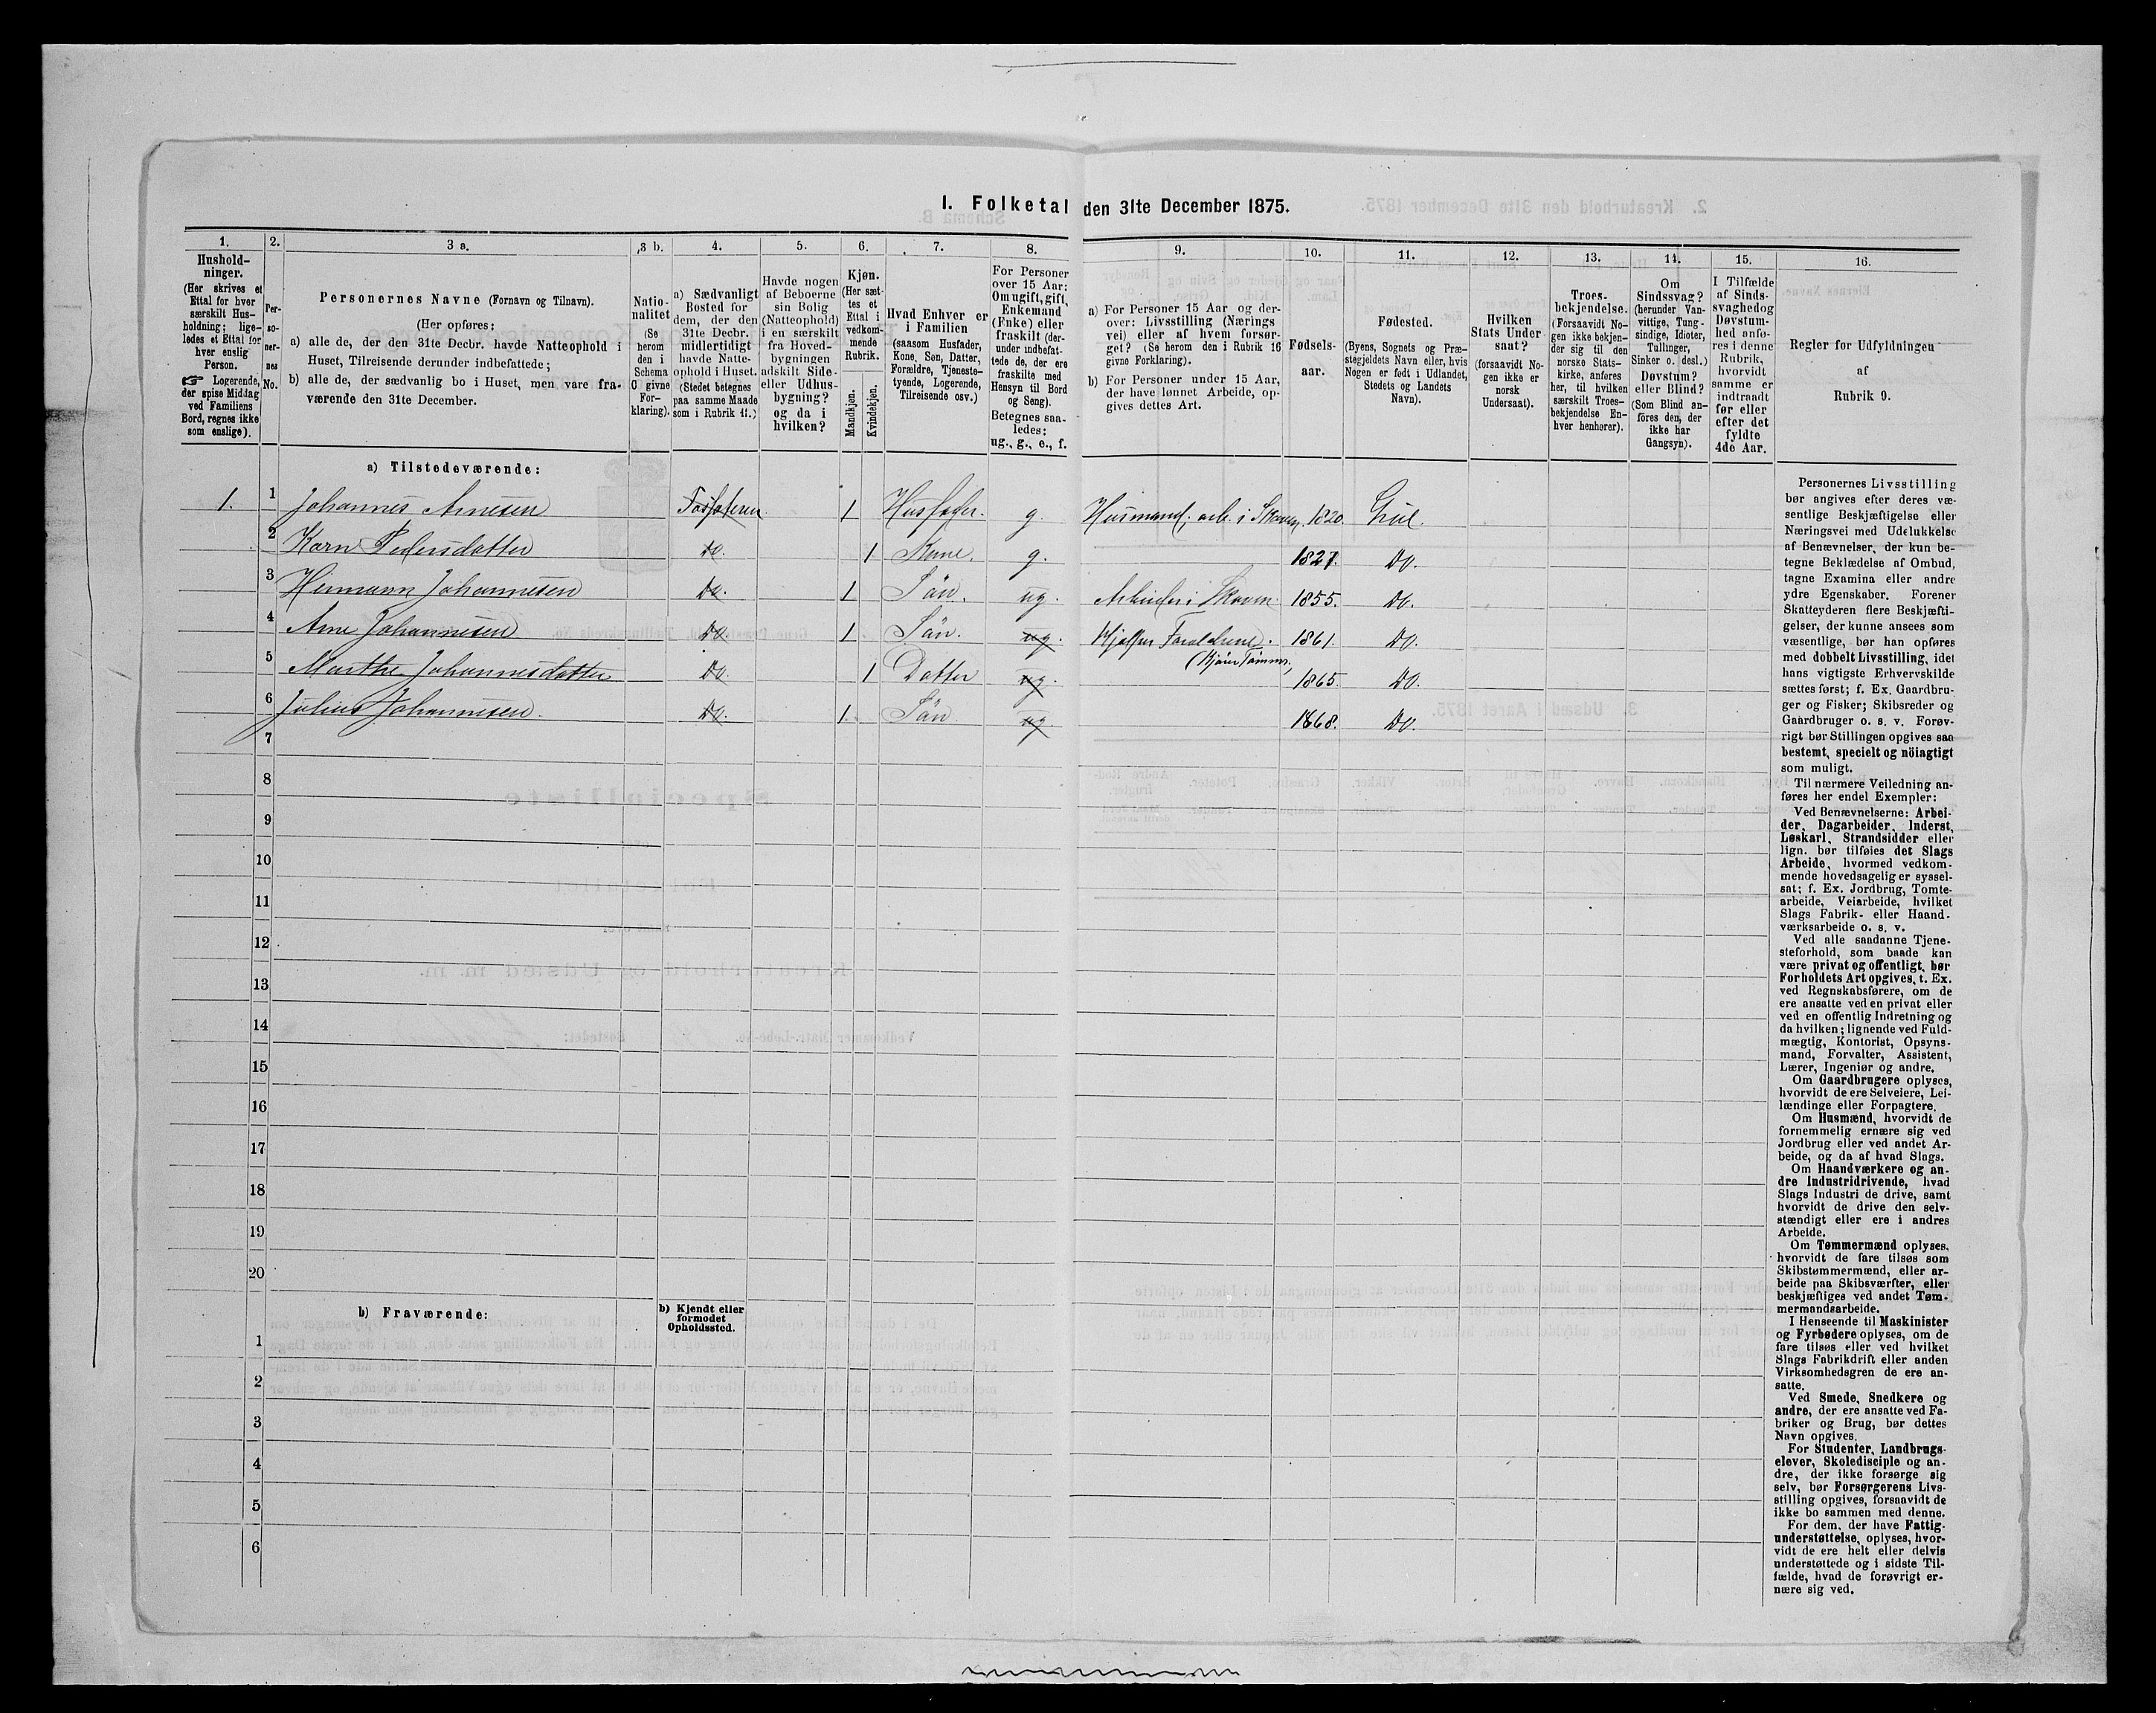 I. Folketal den 31te December 1875.
1.
Hushold-
ninger.
(Her skrives et
Ettal for hver
særskilt Hus-
holdning; lige-
ledes et Ettal for
hver enslig
Person.
☞ Logerende,
der spise Middag
ved Familiens
Bord, regnes ikke
som enslige).
2.
Per-
so-
ner-
nes
No.
3 a.
Personernes Navne (Fornavn og Tilnavn).
(Her opføres:
a) alle de, der den 31te Decbr. havde Natteophold i
Huset, Tilreisende derunder indbefattede;
b) alle de, der sædvanlig bo i Huset, men vare fra-
værende den 31te December.
3 b.
Natio-
nalitet
(Se
herom
den i
Schema
C givne
For-
klaring).
4.
a) Sædvanligt
Bosted for
dem, der den
31te Decbr.
midlertidigt
havde Natte-
ophold i Huset.
(Stedet betegnes
paa samme Maade
som i Rubrik 11.)
5.
Havde nogen
af Beboerne
sin Bolig
(Natteophold)
i en særskilt
fra Hoved-
bygningen
adskilt Side-
eller Udhus-
bygning?
og da i
hvilken?
6.
Kjøn.
(Her sæt-
tes et
Ettal i
vedkom-
mende
Rubrik.
Mandkjøn.
Kvindekjøn.
7.
Hvad Enhver er
i Familien
(saasom Husfader,
Kone, Søn, Datter,
Forældre, Tjeneste-
tyende, Logerende,
Tilreisende osv.)
8.
For Personer
over 15 Aar:
Om ugift, gift,
Enkemand
(Enke) eller
fraskilt (der-
under indbefat-
tede de, der ere
fraskilte med
Hensyn til Bord
og Seng).
Betegnes saa-
ledes:
ug., g., e., f.
9.
a) For Personer 15 Aar og der-
over: Livsstilling (Nærings
vei) eller af hvem forsør-
get? (Se herom den i Rubrik 16
givne Forklaring).
b) For Personer under 15 Aar,
der have lønnet Arbeide, op-
gives dettes Art.
10.
Fødsels-
aar.
11.
Fødested.
(Byens, Sognets og Præ-
stegjeldets Navn eller, hvis
Nogen er født i Udlandet,
Stedets og Landets
Navn).
12.
Hvilken
Stats Under
saat?
(forsaavidt No-
gen ikke er
norsk
Undersaat).
13.
Troes-
bekjendelse.
(Forsaavidt No-
gen ikke bekjen-
der sig til den
norske Stats-
kirke, anføres
her, til hvilken
særskilt Troes-
bekjendelse En-
hver henhører).
14.
Om
Sindssvag?
(herunder Van-
vittige, Tung-
sindige, Idioter,
Tullinger,
Sinker o. desl.)
Døvstum?
eller Blind?
(Som Blind an-
føres den, der
ikke har
Gangsyn).
15.
I Tilfælde
af Sinds-
svaghed og
Døvstum-
hed anfø-
res i denne
Rubrik,
hvorvidt
samme er
indtraadt
før eller
efter det
fyldte
4de Aar.
16.
Regler for Udfyldningen
af
Rubrik 9.
a) Tilstedeværende:
1. 1 Johannes Arnesen 1 Husfader. g. Husmand, arb. i Skoven 1820.
2 Karn Pedersdatter Do. 1 Kone g. 1827. Do.
3 Hermann Johannesen Do. 1 Sön. ug. Arbeider i Skoven 1855. Do.
4 Arne Johannesen Do. 1 Sön. ug. Hjelper Forældrene. 1861. Do.
(Kjörer Tömmer)
5 Marthe Johannesdatter Do. 1 Datter ug. 1865. Do.
6 Julius Johannesen. Do. 1 Sön ug. 1868. Do.
7
8
9
10
11
12
13
14
15
16
17
18
19
20
b) Fraværende:
b) Kjendt eller
formodet
Opholdssted.
1
2
3
4
5
6
Personernes Livsstilling
bør angives efter deres væ-
sentlige Beskjæftigelse eller
Næringsvei med Udelukkelse
af Benævnelser, der kun be-
tegne Beklædelse af Ombud,
tagne Examina eller andre
ydre Egenskaber. Forener
Skatteyderen flere Beskjæfti-
gelser, der kunne ansees som
væsentlige, bør han opføres
med dobbelt Livsstilling, idet
hans vigtigste Erhvervskilde
sættes først; f. Ex. Gaardbru-
ger og Fisker; Skibsreder og
Gaardbruger o. s. v. Forøv-
rigt bør Stillingen opgives saa
bestemt, specielt og nöiagtigt
som muligt.
Til nærmere Veiledning an-
føres her endel Exempler:
Ved Benævnelserne: Arbei-
der, Dagarbeider, Inderst,
Løskarl, Strandsidder eller
lign. bør tilføies det Slags
Arbeide, hvormed vedkom-
mende hovedsagelig er syssel-
sat; f. Ex. Jordbrug, Tomte-
arbeide, Veiarbeide, hvilket
Slags Fabrik- eller Haand-
værksarbeide o. s. v.
Ved alle saadanne Tjene-
steforhold, som baade kan
være privat og offentligt, bør
Forholdets Art opgives, t. Ex.
ved Regnskabsførere, om de
ere ansatte ved en privat eller
ved en offentlig Indretning og
da hvilken; lignende ved Fuld-
mægtig, Kontorist, Opsyns-
mand, Forvalter, Assistent,
Lærer, Ingeniør og andre.
Om Gaardbrugere oplyses,
hvorvidt de ere Selveiere, Lei-
lændinge eller Forpagtere.
Om Husmænd, hvorvidt de
fornemmelig ernære sig ved
Jordbrug eller ved andet Ar-
beide, og da af hvad Slags.
Om Haandværkere og an-
dre Industridrivende, hvad
Slags Industri de drive, samt
hvorvidt de drive den selv-
stændigt eller ere i andres
Arbeide.
Om Tømmermænd oplyses,
hvorvidt de fare tilsøs som
Skibstømmermænd, eller ar-
beide paa Skibsværfter, eller
beskjæftiges ved andet Tøm-
mermandsarbeide.
I Henseende til Maskinister
og Fyrbødere oplyses, om de
fare tilsøs eller ved hvilket
Slags Fabrikdrift eller anden
Virksomhedsgren de ere an-
satte.
Ved Smede, Snedkere og
andre, der ere ansatte ved Fa-
briker og Brug, bør dettes
Navn opgives.
For Studenter, Landbrugs-
elever, Skoledisciple og an-
dre, der ikke forsørge sig
selv, bør Forsørgerens Livs-
stilling opgives, forsaavidt de
ikke bo sammen med denne.
For dem, der have Fattig-
understøttelse, oplyses, hvor-
vidt de ere helt eller delvis
understøttede og i sidste Til-
fælde, hvad de forøvrigt er-
nære sig ved.